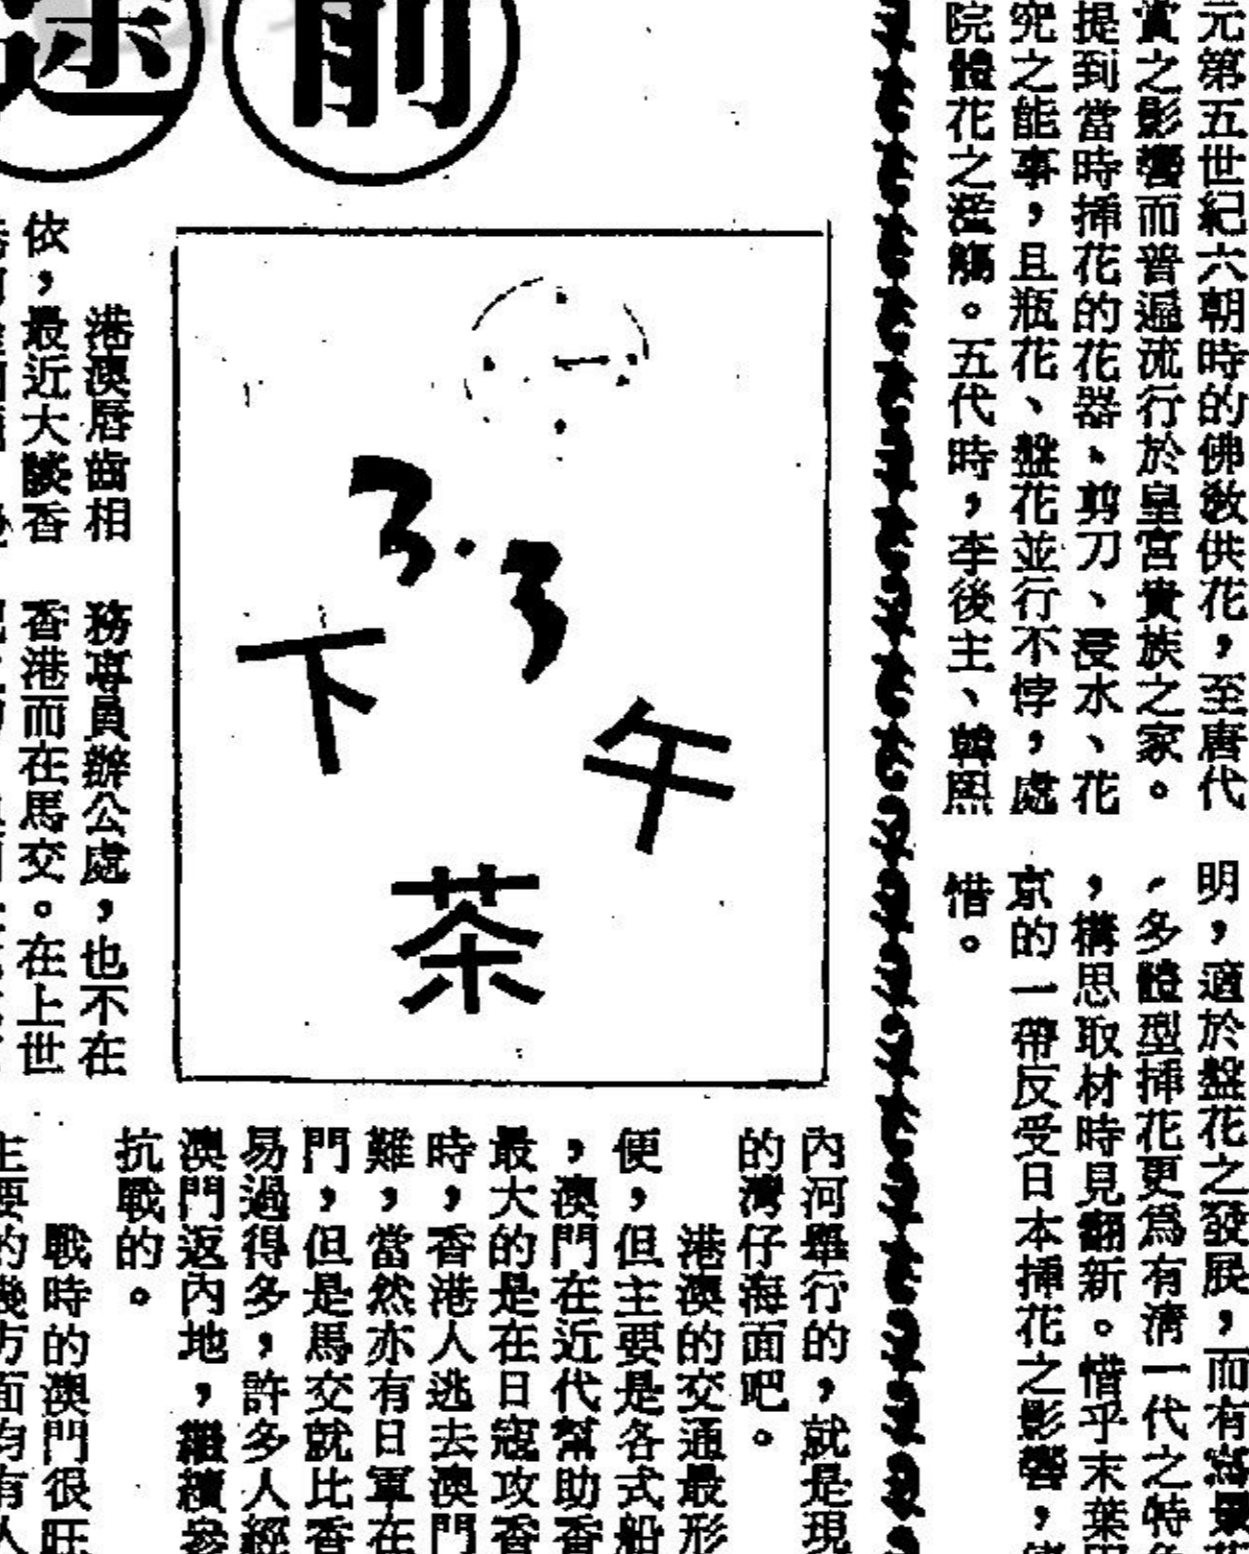 元第五世紀六朝時的佛教供花，至唐代
賞之影響而普遍流行於皇宮貴族之家。
提到當時揷花的花器、剪刀、浸水、花
究之能事，且瓶花、盤花並行不悖，處
院體花之濫觴。五代時，李後主、韓熙
明，適於盤花之發展，而有
，多體型揷花更爲有淸一代之特
，構思取材時見翻新。惜乎末葉
京的一帶反受日本揷花之影響，
惜。
前途
3.3
下午茶
港澳唇齒相
依，最近大談香
務專員辦公處，也不在
香港而在馬交。在上世
內河舉行的，就是現
的灣仔海面吧。
港澳的交通最形
便，但主要是各式船
，澳門在近代幫助香
最大的是在日寇攻香
時，香港人逃去澳門
難，當然亦有日軍在
門，但是馬交就比香
易過得多，許多人經
澳門返內地，繼續參
抗戰的。
戰時的澳門很旺
主要的幾方面均有人